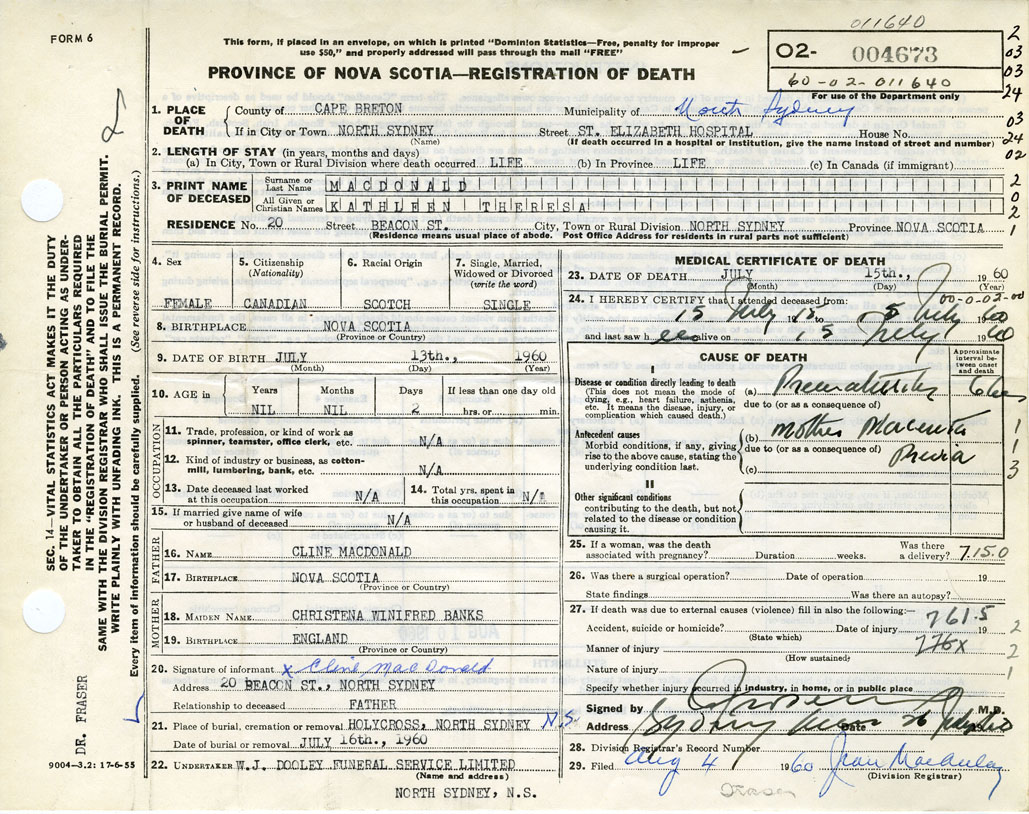 011640
FORM 6
This form, if placed in an envelope, on which is printed "Dominion Statistics—Free, penalty for improper
use $50," and properly addressed will pass through the mail "FREE"
PROVINCE OF NOVA SCOTIA—REGISTRATION OF DEATH
02- 004673
60-02-011640
For use of the Department only
2
03
03
24
03
24
02
2
0
2
1
1. PLACE OF DEATH
County of CAPE BRETON Municipality of North Sydney
If in City or Town NORTH SYDNEY Street ST. ELIZABETH HOSPITAL House No.
(Name) (If death occurred in a hospital or institution, give the name instead of street and number)
2. LENGTH OF STAY (in years, months and days)
(a) In City, Town or Rural Division where death occurred LIFE (b) In Province LIFE (c) In Canada (if immigrant)
3. PRINT NAME OF DECEASED
Surname or Last Name MACDONALD
All Given or Christian Names KATHLEEN THERESA
RESIDENCE No. 20 Street BEACON ST. City, Town or Rural Division NORTH SYDNEY Province NOVA SCOTIA
(Residence means usual place of abode. Post Office Address for residents in rural parts not sufficient)
4. Sex
FEMALE
5. Citizenship
(Nationality)
CANADIAN
6. Racial Origin
SCOTCH
7. Single, Married,
Widowed or Divorced
(write the word)
SINGLE
8. BIRTHPLACE NOVA SCOTIA
(Province or Country)
9. DATE OF BIRTH JULY 13th., 1960
(Month) (Day) (Year)
10. AGE in
Years Months Days If less than one day old
NIL NIL 2 hrs. or min.
OCCUPATION
11. Trade, profession, or kind of work as
spinner, teamster, office clerk, etc. N/A
12. Kind of industry or business, as cotton-
mill, lumbering, bank, etc. N/A
13. Date deceased last worked
at this occupation N/A
14. Total yrs. spent in
this occupation
15. If married give name of wife
or husband of deceased N/A
FATHER
16. NAME CLINE MACDONALD
17. BIRTHPLACE NOVA SCOTIA
(Province or Country)
MOTHER
18. MAIDEN NAME CHRISTENA WINIFRED BANKS
19. BIRTHPLACE ENGLAND
(Province or Country)
20. Signature of informant x Cline MacDonald
Address 20 BEACON ST., NORTH SYDNEY
Relationship to deceased FATHER
21. Place of burial, cremation or removal HOLYCROSS, NORTH SYDNEY N.S.
Date of burial or removal JULY 16th., 1960
22. UNDERTAKER W.J. DOOLEY FUNERAL SERVICE LIMITED
(Name and address)
NORTH SYDNEY, N.S.
MEDICAL CERTIFICATE OF DEATH
23. DATE OF DEATH JULY 15th., 1960
(Month) (Day) (Year)
00-0-02-00
24. I HEREBY CERTIFY that I attended deceased from:
15 July 15 July 1960
and last saw h alive on 15 July 1960
CAUSE OF DEATH
Approximate
interval be-
tween onset
and death
I
Disease or condition directly leading to death
(This does not mean the mode of
dying, e.g., heart failure, asthenia,
etc. It means the disease, injury, or
complication which caused death.)
(a) Prematurity
due to (or as a consequence of)
Antecedent causes
Morbid conditions, if any, giving
rise to the above cause, stating the
underlying condition last.
(b) Mother Placenta
due to (or as a consequence of) Previa
(c)
1
1
3
II
Other significant conditions
contributing to the death, but not
related to the disease or condition
causing it.
25. If a woman, was the death
associated with pregnancy? Duration weeks. Was there
a delivery? 7.15.0
26. Was there a surgical operation? Date of operation 19
State findings Was there an autopsy?
27. If death was due to external causes (violence) fill in also the following:—
761.5
Accident, suicide or homicide? Date of injury 19 2
(State which)
Manner of injury 776x 2
(How sustained)
Nature of injury 1
Specify whether injury occurred in industry, in home, or in public place
Signed by M.D.
Address Sydney Mines Date 26 July
28. Division Registrar's Record Number
29. Filed Aug 4 1960 Jean MacAulay
(Division Registrar)
Fraser
SEC. 14—VITAL STATISTICS ACT MAKES IT THE DUTY
OF THE UNDERTAKER OR PERSON ACTING AS UNDER-
TAKER TO OBTAIN ALL THE PARTICULARS REQUIRED
IN THE "REGISTRATION OF DEATH" AND TO FILE THE
SAME WITH THE DIVISION REGISTRAR WHO SHALL ISSUE THE BURIAL PERMIT.
WRITE PLAINLY WITH UNFADING INK. THIS IS A PERMANENT RECORD.
Every item of information should be carefully supplied. (See reverse side for instructions.)
DR. FRASER
9004—3.2: 17-6-55